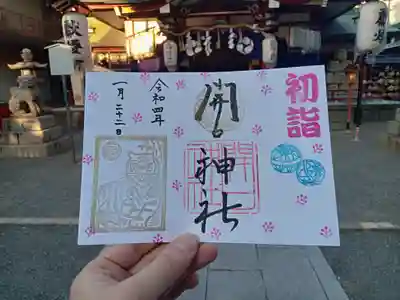 初詣
開口
神社
令和四年
一月二十二日